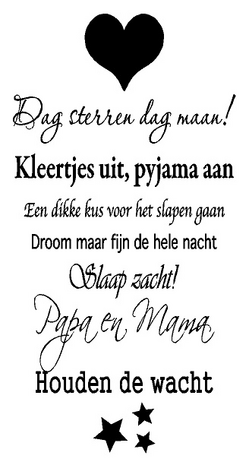 Dag sterren dag maan!
Kleertjes uit, pyjama aan
Een dikke kus voor het slapen gaan
Droom maar fijn de hele nacht
Slaap zacht!
Papa en Mama
Houden de wacht